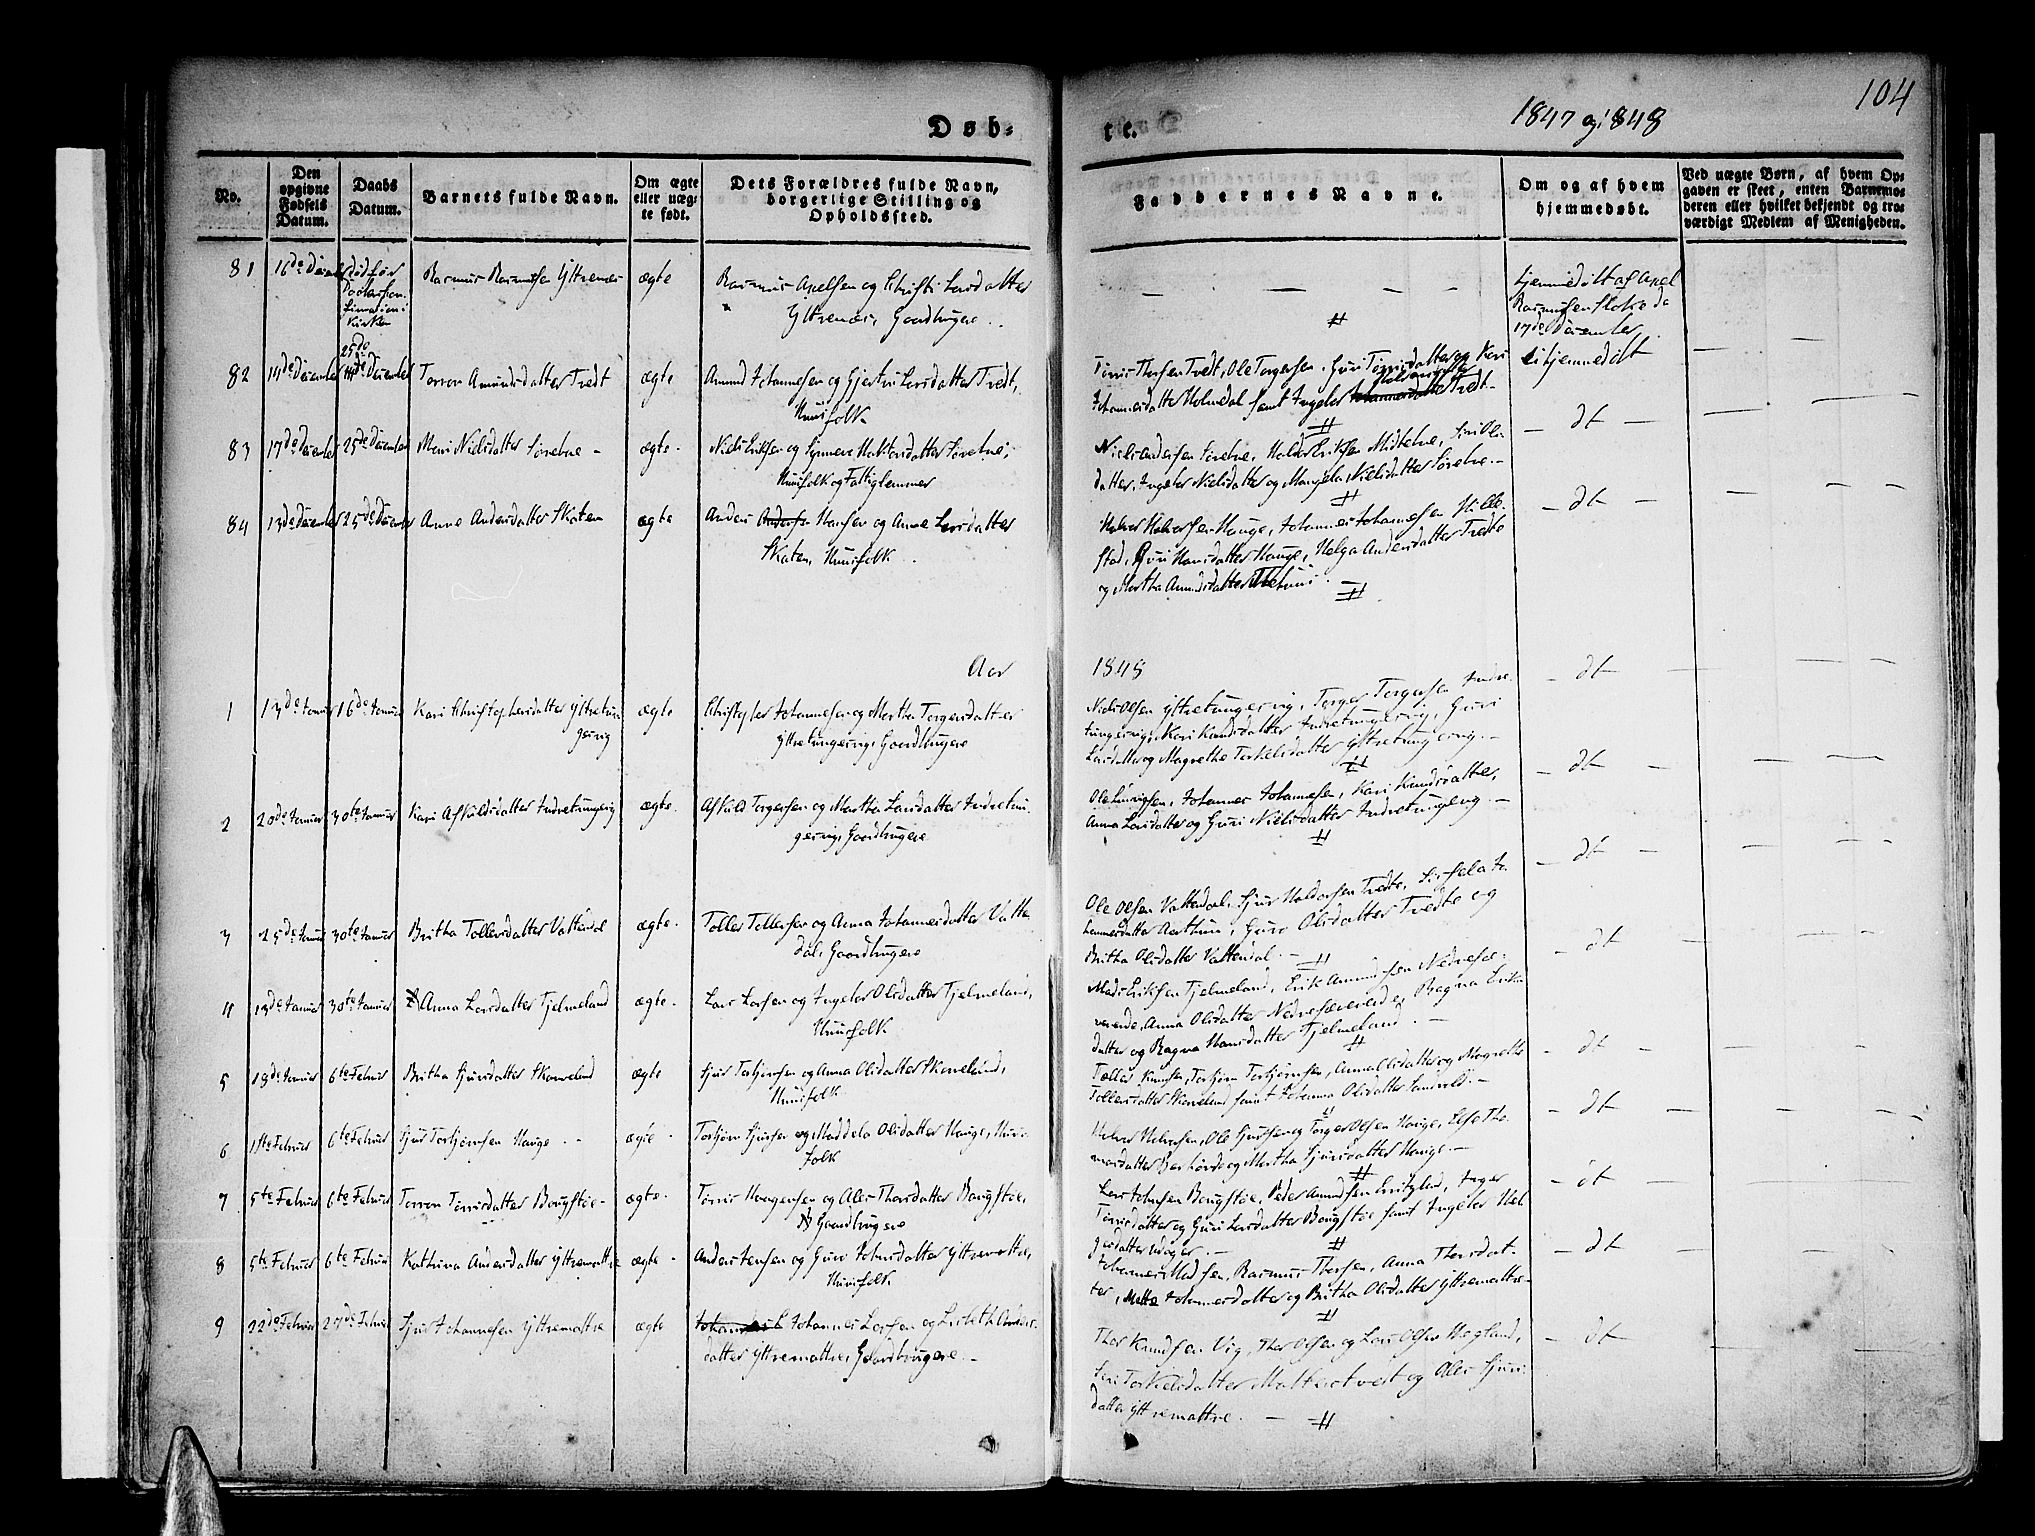 104
1847 og 1848
Døb-
te.
No.
Den opgivne Fødsels Datum.
Daabs Datum.
Barnets fulde Navn.
Om ægte eller uægte født.
Dets Forældres fulde Navn, borgerlige Stilling og Opholdssted.
Faddernes Navne.
Om og af hvem hjemmedøbt.
Ved uægte Børn, af hvem Opgaven er skeet, enten Barnemoderen eller hvilket bekjendt og troværdigt Medlem af Menigheden.
81 16de December død før Rasmus Rasmussen Yttrenæs ægte Rasmus Axelsen og Christi Larsdatter
Yttrenæs, Gaardbrugere
hjemmedøbt af Axel
Rasmussen da
17de December
25de
82 14de December Torron Amundsdatter Tvedt ægte Amund Johannesen og Gjertru Larsdatter Tvedt,
Huusfolk
Tørris Thorsen Tvedt, Ole Torgersen, Guri Tørrisdatter og Kari
Johannesdatter Holmedal samt Ingelev Tvedt
ei hjemmedøbt
83 17de December 25de December Mari Nielsdatter ægte Niels Eriksen og Synneve
Huusfolk og Fattiglemmer
Niels Andersen
datter, Ingelev Nielsdatter og Nielsdatter
dt
84 13de December 25de December Anne Andersdatter Skaten ægte Anders Hansen og Anne Larsdatter
Skaten, Huusfolk
Halvor Halvorsen Hauge, Johannes Johannesen Hille-
stad, Guri Hansdatter Hauge, Helga Andersdatter Tvedte
og Martha Amundsdatter
dt
Aar
1848
dt
1 13de Januar 16de Januar Kari Christophersdatter Yttretun-
gesvig
ægte Christopher Johannesen og Martha Torgersdatter
Yttretungesvig, Gaardbrugere
Niels Olsen Yttretungesvig, Torger Torgersen Indre-
tungesvig, Kari Knudsdatter Indretungesvig, Guri
Larsdatter og Magrethe Torkelsdatter Yttretungesvig
dt
2 20de Januar 30te Januar Kari Asfuldsdatter Indretungesvig ægte Asfuld Torgersen og Martha Larsdatter Indretun-
gesvig, Gaardbrugere
Ole Johannes Johannesen, Kari Knudsdatter,
Anna Larsdatter og Guri Nielsdatter Indretungesvig
dt
3 25de Januar 30te Januar Britha Tollevsdatter Vattendal ægte Tollev Tollevsen og Anna Johannesdatter Vatten-
dal, Gaardbrugere
Ole Olsen Vattendal, Sjur Haldorsen Tvedte, Jo-
hannesdatter Aarthun, Guro Olsdatter Tvedte og
Britha Olsdatter Vattendal
dt
4 13de Januar 30te Januar Anna Larsdatter Tjelmeland ægte Lars Larsen og Ingelev Olsdatter Tjelmeland,
Huusfolk
Mads Eriksen Tjelmeland, Erik Amundsen
Anna Olsdatter Ragna Eriks-
datter og Ragna Hansdatter Tjelmeland
dt
5 Januar 6te Februar Britha Sjursdatter Skaveland ægte Sjur Torbjørnsen og Anna Olsdatter Skaveland,
Huusfolk
Tollev Knudsen, Torbjørn Torbjørnsen, Anna Olsdatter og Magretha
Tollevsdatter Skaveland samt Johanna Olsdatter Sandvold
dt
6 1ste Februar 6te Februar Sjur Torbjørnsen Hauge ægte Torbjørn Sjursen og Maddela Olsdatter Hauge, Huus-
folk
Halvor Halvorsen, Ole Sjursen og Torger Olsen Hauge, Else Tho-
masdatter og Martha Sjursdatter Hauge
dt
7 5te Februar 6te Februar Torron Tørrisdatter Bougstøe ægte Tørris Haagensen og Ales Thorsdatter Bougstøe,
Gaardbrugere
Lars Johnsen Bougstøe, Peder Amundsen Inger
Tørrisdatter og Guri Larsdatter Bougstøe samt Ingelev Hel-
gesdatter
dt
8 5te Februar 6te Februar Kathrina Andersdatter Yttrematre ægte Anders Jensen og Guro Johnsdatter Yttrematre,
Huusfolk
Johannes Madsen, Rasmus Thorsen, Anna Thorsdat-
ter, Mette Johannesdatter og Britha Olsdatter Yttrematre
dt
9 22de Februar 27de Februar Sjur Johannesen Yttrematre ægte Johannes Larsen og Lisbeth Anders-
datter Yttrematre, Gaardbrugere
Thor Knudsen Vig, Thor Olsen og Lars Olsen Hagland,
Siri Torkelsdatter og Ales Sjurs-
datter Yttrematre